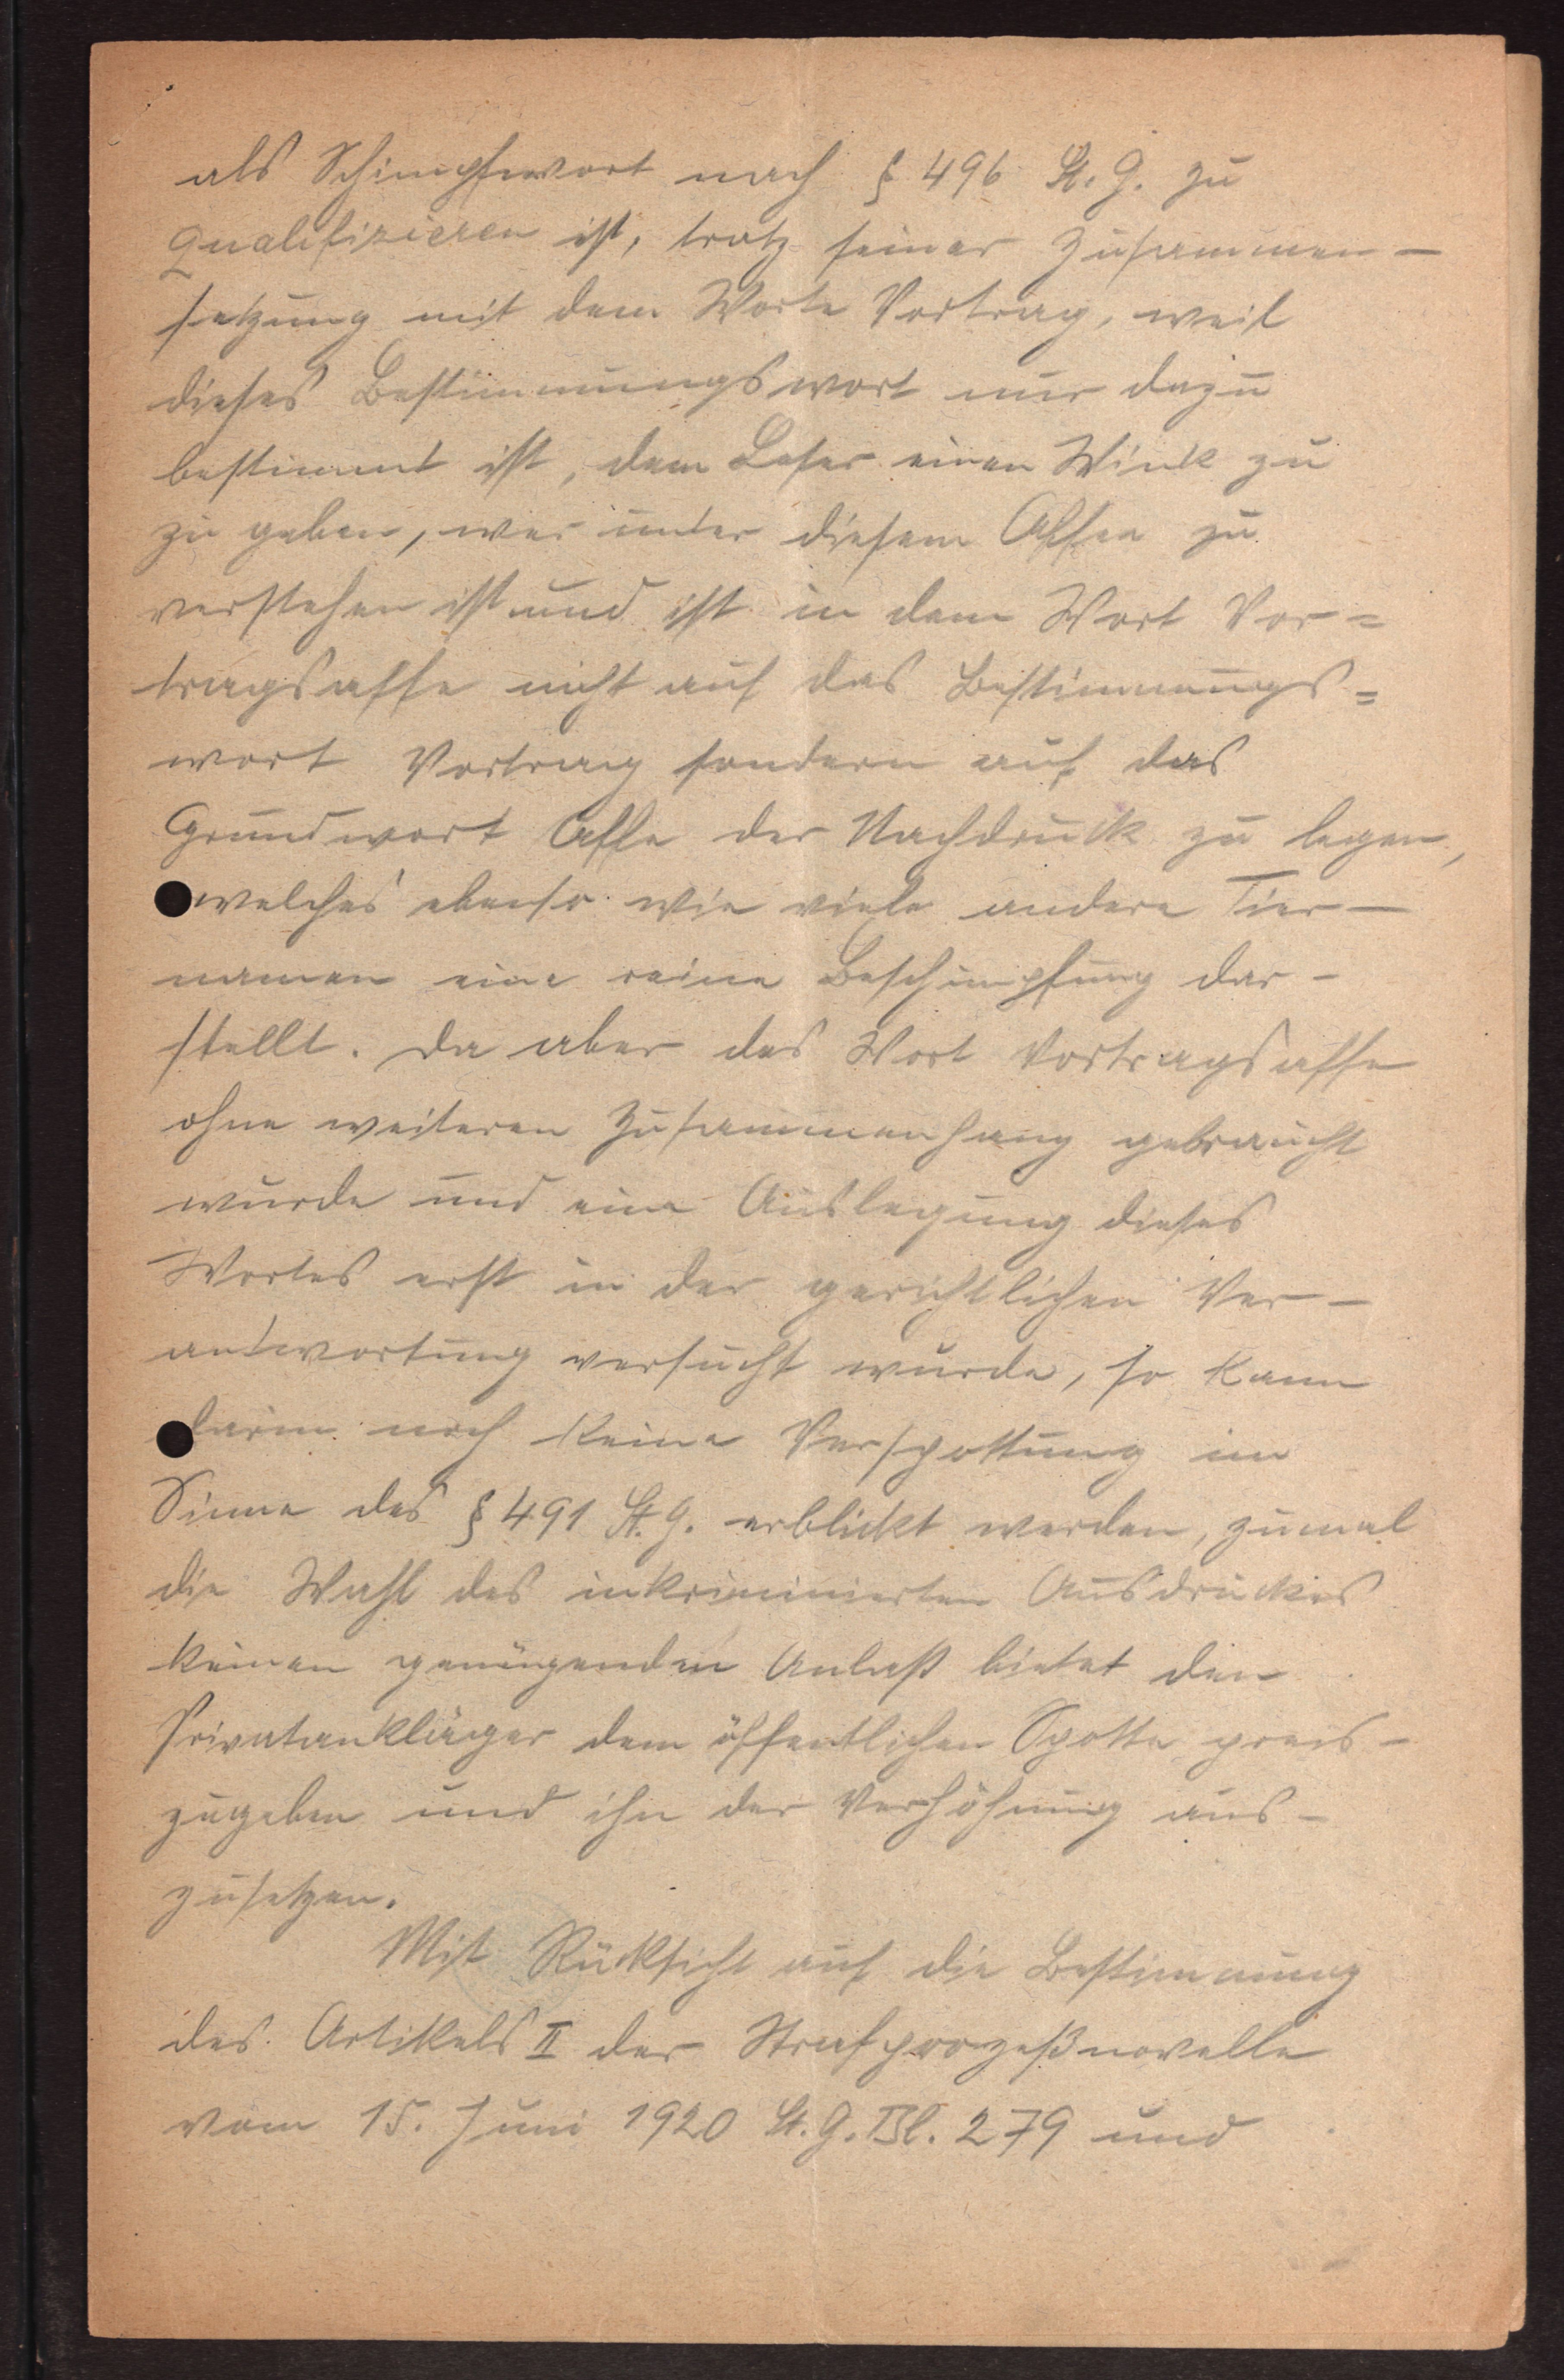 als Schimpfwort nach § 496 St. G. zu
qualifizieren ist, trotz seiner Zusammen-
setzung mit dem Worte Vortrag, weil
dieses Bestimmungswort nur dazu
bestimmt ist, dem Leser einen Wink zu
zu geben, wer unter diesem Affen zu
verstehen ist und ist in dem Wort Vor=
tragsaffe nicht auf das Bestimmungs=
wort Vortrag sondern auf das
Grundwort Affe der Nachdruck zu legen,
welches ebenso wie viele andere Tier-
namen eine reine Beschimpfung dar-
stellt. Da aber das Wort Vortragsaffe
ohne weiteren Zusammenhang gebraucht
wurde und eine Auslegung dieses
Wortes erst in der gerichtlichen Ver-
antwortung versucht wurde, so kann
darin noch keine Verspottung im
Sinne des § 491 St. G. erblickt werden, zumal
die Wahl des inkriminierten Ausdruckes
keinen genügenden Anlaß bietet den
Privatankläger dem öffentlichen Spotte preis-
zugeben und ihn der Verhöhnung aus-
zusetzen.
Mit Rücksicht auf die Bestimmung
des Artikels II der Strafprozeßnovelle
vom 15. Juni 1920 St. G. Bl. 279 und